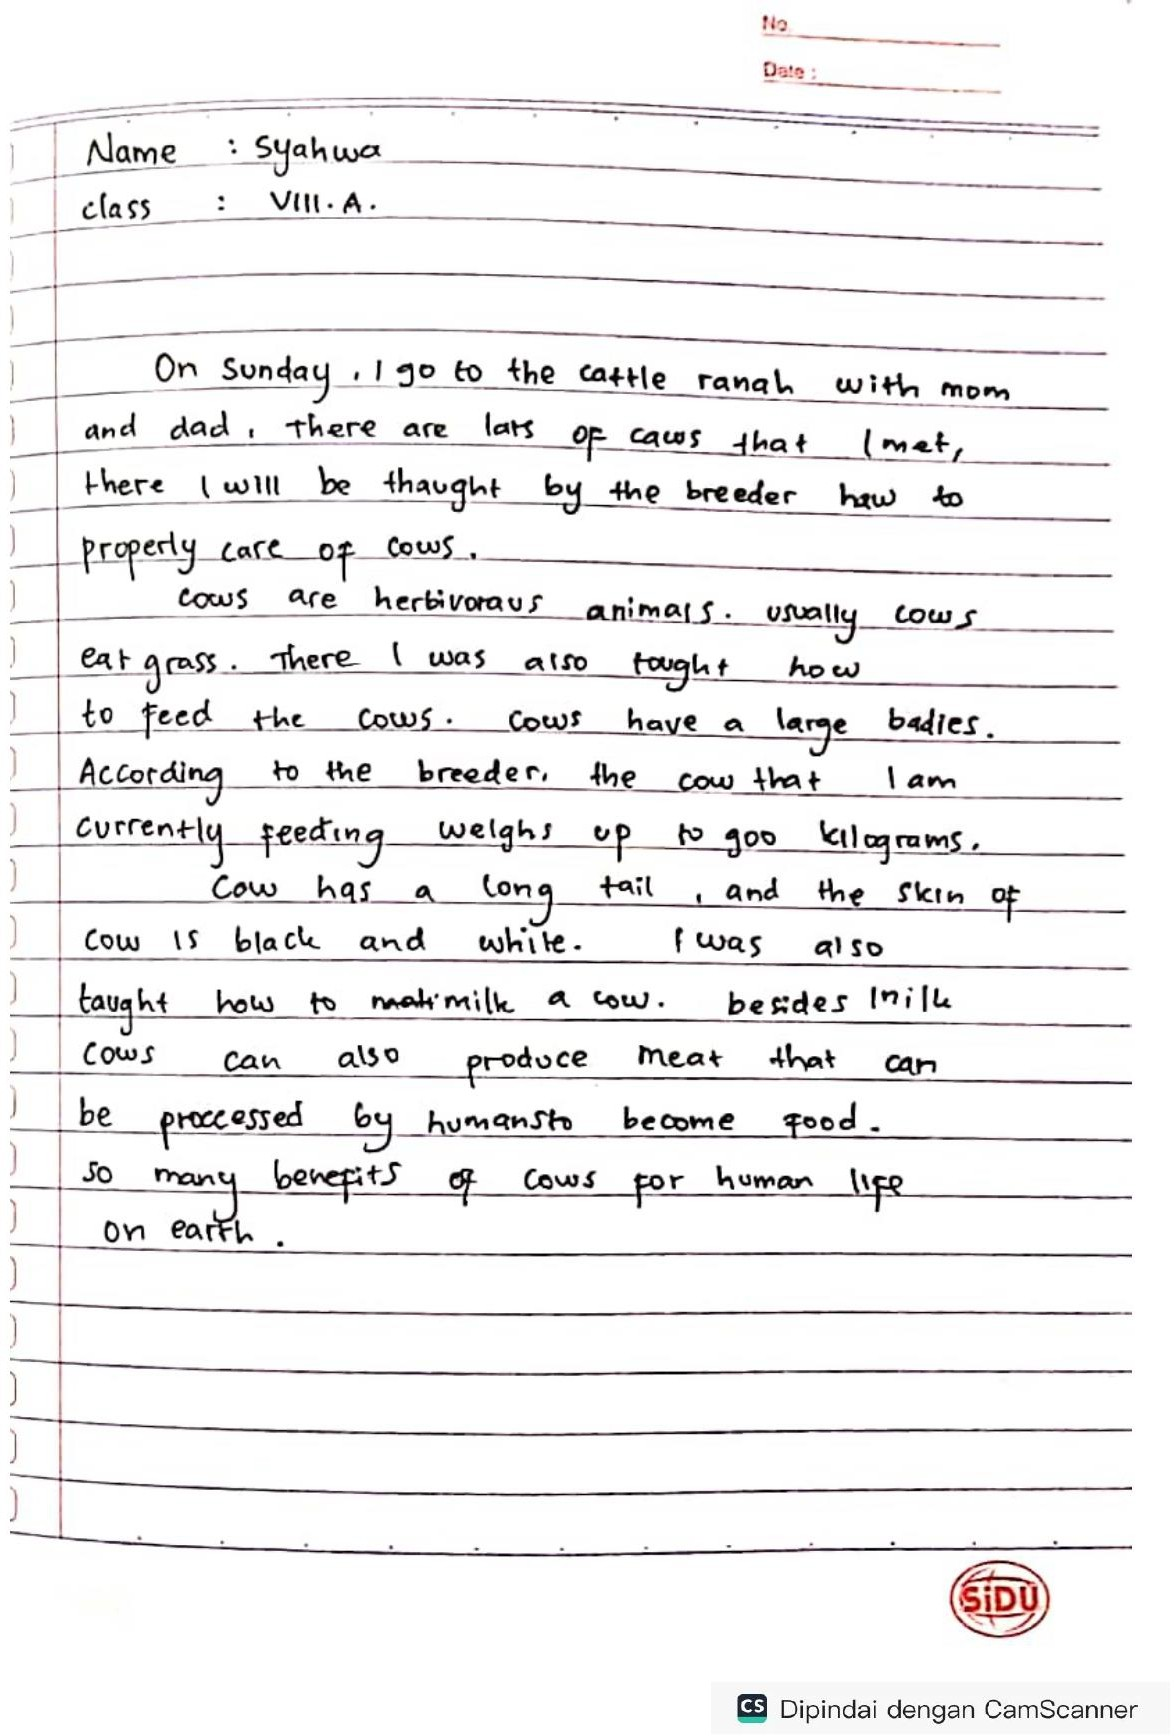 No.
Date :
Name : Syahwa
class : VIII. A.
On Sunday, I go to the cattle ranah with mom
and dad, there are lats of caws that I met,
there I will be thaught by the breeder haw to
properly care of cows.
cows are herbivoraus animals. usually cows
eat grass. There I was also tought how
to feed the cows. cows have a large badies.
According to the breeder, the cow that I am
currently feeding weighs up to 900 kilograms.
Cow has a long tail, and the skin of
cow is black and white. I was also
taught how to milk a cow. besides milk
cows can also produce meat that can
be proccessed by humansto become food.
so many benefits of cows for human life
on earth.
SiDU
CS Dipindai dengan CamScanner